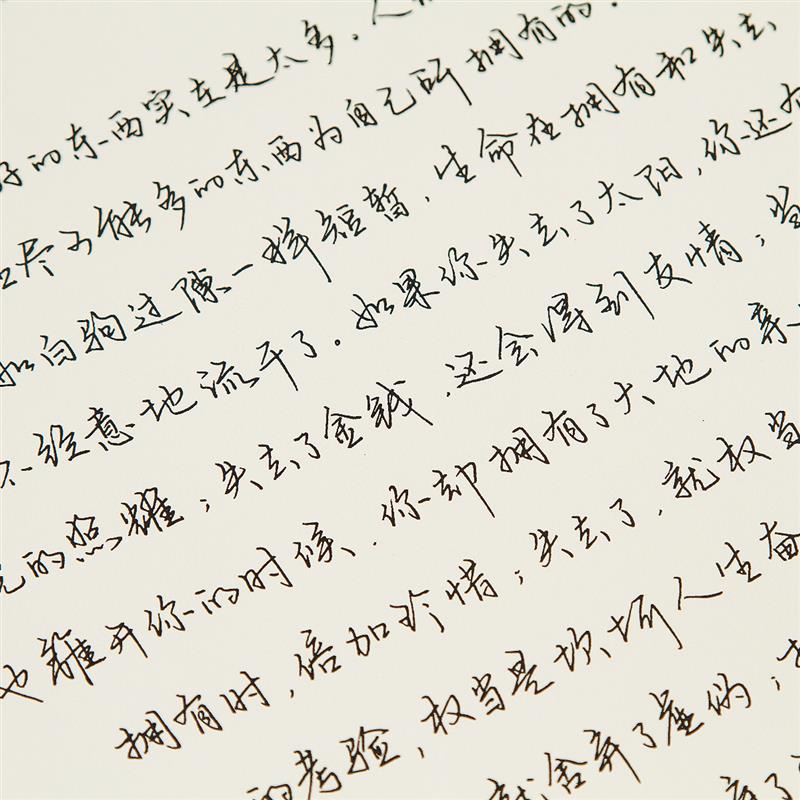 好的东西实在是太多。人
尽可能多的东西为自己所拥有的。
如白驹过隙一样短暂,生命在拥有和失去
不经意地流干了。如果你失去了太阳,你还有
的照耀;失去了金钱,还会得到友情;当
也离开你的时候,你却拥有了大地的亲
拥有时,倍加珍惜;失去了,就权当
的考验,权当是坎坷人生奋
就舍弃了虚伪;
弃了